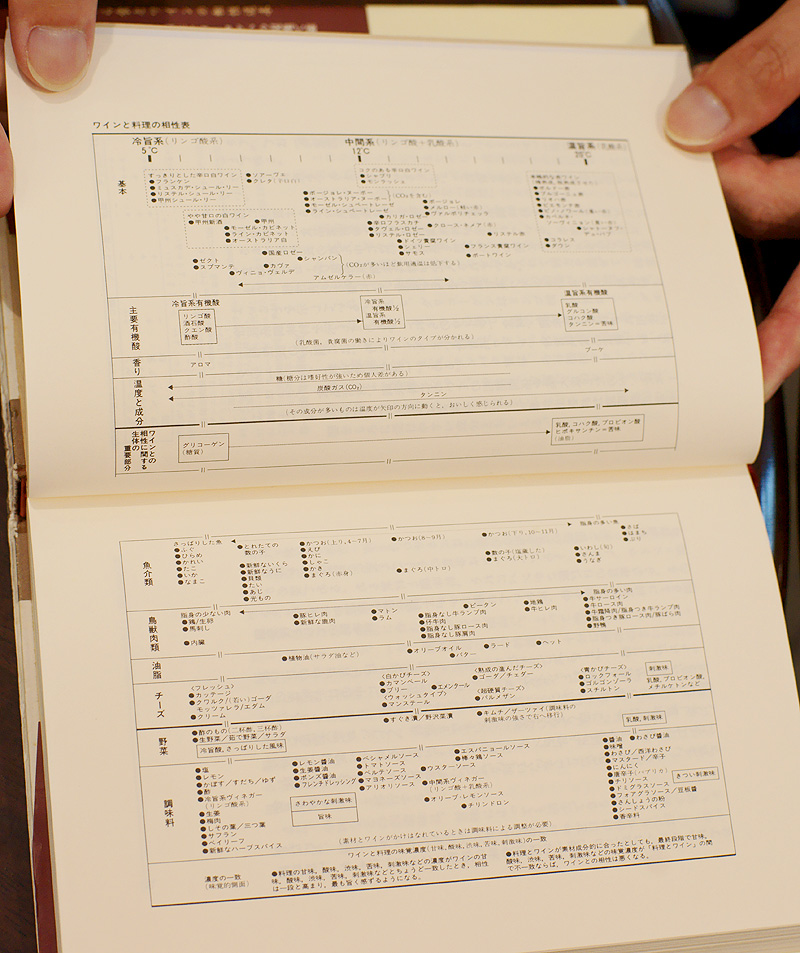 ワインと料理の相性表
冷旨系(リンゴ酸系)
5℃
中間系(リンゴ酸+乳酸系)
12℃
温旨系(乳酸系)
20℃
基本
すっきりとした辛口白ワイン
●フランケン
●ミュスカデ・シュール・リー
●リステル・シュール・リー
●甲州シュール・リー
●ソアーヴェ
コクのある辛口白ワイン
●シャブリ
●モンラッシェ
●ボージョレ・ヌーボー
●オーストラリア・ヌーボー
●モーゼル・シュペートレーゼ
●ライン・シュペートレーゼ
(CO₂を含む)
●ボージョレ
●ヴァルポリチェッラ
やや甘口の白ワイン
●甲州新酒
●甲州
●モーゼル・カビネット
●ライン・カビネット
●オーストラリア白
●カリガ・ロゼ
●辛口フラスカチ
●タヴェル・ロゼ
●リステル・ロゼ
●クロース・ネメア(赤)
●リステル赤
●国産ロゼ
●ドイツ貴腐ワイン
●シェリー
●サモス
●フランス貴腐ワイン
●ポートワイン
●コラレス
●ダウン
●ゼクト
●スプマンテ
●カヴァ
●ヴィニョ・ヴェルデ
●シャンパン
(CO₂が多いほど飲用適温は低下する)
アムゼルケラー(赤)
主要有機酸
冷旨系有機酸
リンゴ酸
酒石酸
クエン酸
酢酸
冷旨系
有機酸½
温旨系
有機酸½
温旨系有機酸
乳酸
グルコン酸
コハク酸
タンニン=苦味
(乳酸菌,貴腐菌の働きによりワインのタイプが分かれる)
香り
アロマ
ブーケ
温度と成分
糖(糖分は嗜好性が強いため個人差がある)
炭酸ガス(CO₂)
タンニン
(その成分が多いものは温度が矢印の方向に動くと,おいしく感じられる)
ワインとの相性に関する生体の重要部分
グリコーゲン
(糖質)
乳酸,コハク酸,プロピオン酸
ヒポキサンチン=苦味
(油脂)
魚介類
さっぱりした魚
●ふぐ
●ひらめ
●かれい
●たこ
●いか
●なまこ
●とれたての
数の子
●新鮮ないくら
●新鮮なうに
●貝類
●たい
●あじ
●光もの
●かつお(上り,4~7月)
●えび
●かに
●しゃこ
●かき
●まぐろ(赤身)
●かつお(8~9月)
●まぐろ(中トロ)
●かつお(下り,10~11月)
●数の子(塩蔵した)
●まぐろ(大トロ)
脂身の多い魚
●さば
●はまち
●ぶり
●いわし(旬)
●さんま
●うなぎ
鳥獣肉類
脂身の少ない肉
●鶏/生卵
●馬刺し
●内臓
●豚ヒレ肉
●新鮮な鹿肉
●マトン
●ラム
●ピータン
●脂身なし牛ランプ肉
●仔牛肉
●脂身なし豚ロース肉
●脂身なし豚肩肉
●地鶏
●牛ヒレ肉
脂身の多い肉
●牛サーロイン
●牛ロース肉
●牛霜降肉/脂身つき牛ランプ肉
●脂身つき豚ロース肉/豚ばら肉
●野鴨
油脂
●植物油(サラダ油など)
●オリーブオイル
●バター
●ラード
●ヘット
チーズ
〈フレッシュ〉
●カッテージ
●クワルク/(若い)ゴーダ
モッツァレラ/エダム
●クリーム
〈白かびチーズ〉
●カマンベール
●ブリー
●エメンタール
〈ウォッシュタイプ〉
●マンステール
〈熟成の進んだチーズ〉
●ゴーダ/チェダー
〈超硬質チーズ〉
●パルメザン
〈青かびチーズ〉
●ロックフォール
●ゴルゴンゾーラ
●スチルトン
刺激味
乳酸,プロピオン酸,
メチルケトンなど
野菜
●酢のもの(二杯酢,三杯酢)
●生野菜/茹で野菜/サラダ
冷旨酸,さっぱりした風味
●すぐき漬/野沢菜漬
●キムチ/ザーツァイ(調味料の
刺激味の強さで右へ移行)
乳酸,刺激味
調味料
●塩
●レモン
●かぼす/すだち/ゆず
●酢
●冷旨系ヴィネガー
(リンゴ酸系)
●生姜
●梅肉
●しその葉/三つ葉
●サフラン
●ベイリーフ
●新鮮なハーブスパイス
●レモン醤油
●生姜醤油
●ポンズ醤油
●フレンチドレッシング
さわやかな刺激味
旨味
●ベシャメルソース
●トマトソース
●ベルテソース
●マヨネーズソース
●アリオリソース
●エスパニョールソース
●蠔々鶏ソース
●ウスターソース
●中間系ヴィネガー
(リンゴ酸+乳酸系)
●オリーブ・レモンソース
●チリンドロン
●醤油
●わさび醤油
●味噌
●わさび/西洋わさび
●マスタード/辛子
●にんにく
●唐辛子(パプリカ)
●チリソース
●ドミグラスソース
●フォアグラソース/豆板醤
●さんしょうの粉
●シードスパイス
●香辛料
きつい刺激味
(素材とワインがかけはなれているときは調味料による調整が必要)
ワインと料理の味覚濃度(甘味,酸味,渋味,苦味,刺激味)の一致
濃度の一致
(味覚的側面)
●料理の甘味,酸味,渋味,苦味,刺激味などの濃度がワインの甘
味,酸味,渋味,苦味,刺激味などとちょうど一致したとき,相性
は一段と高まり,最も旨く感ずるようになる。
●料理とワインが素材成分的に合ったとしても,最終段階で甘味,
酸味,渋味,苦味,刺激味などの味覚濃度が「料理とワイン」の間
で不一致ならば,ワインとの相性は悪くなる。